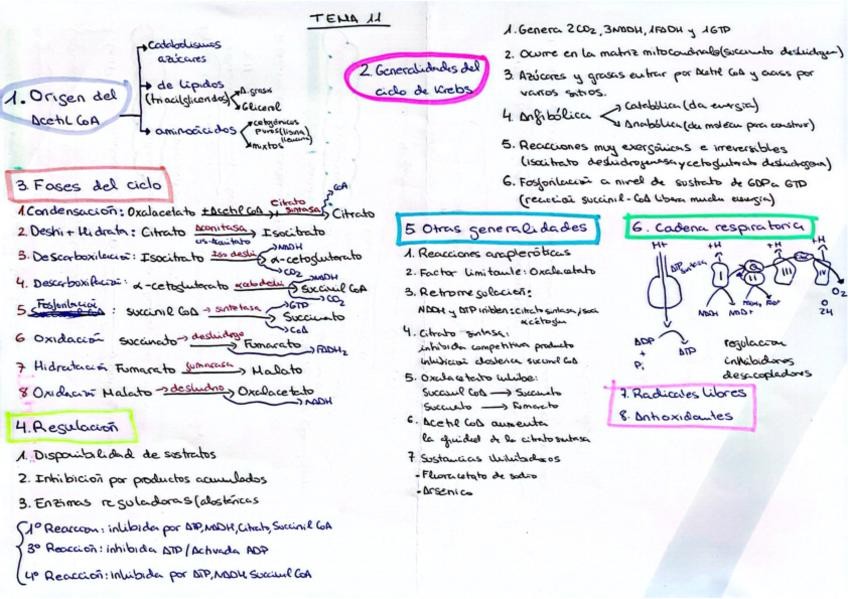 TEMA 11
1. Origen del
Acetil CoA
Catabolismos
azúcares
de lípidos
(triacilgliceridos)
A. grasos
Glicerol
aminoácidos
cetogénicos
puros (lisina
leucina)
mixtos
2. Generalidades del
ciclo de Krebs
1. Genera 2CO2, 3NADH, 1FADH y 1GTP
2. Ocurre en la matriz mitocondrial (succinato deshidrogen)
3. Azúcares y grasas entrar por Acetil CoA y aa
por
varios sitios.
4. Anfibólica
Catabólica (da energia)
Anabólica (da molecu para construir)
5. Reacciones muy exergónicas e irreversibles
(isocitrato deshidrogenasa y cetoglutrato deshidrogena)
6. Fosforilación a nivel de sustrato de GDP a GTD
(reacción succinil-CoA libera mucha energia)
3. Fases del ciclo
1. Condensación: Oxalacetato + Acetil CoA Citrato sintasa Citrato
CoA
2. Deshi + Hidrata: Citrato Aconitasa Isocitrato
cis-
3. Descarboxilación: Isocitrato Iso deshi α-cetogluterato
NADH
CO2
4. Descarboxilación: α-cetogluterato αcto deshi Succinil CoA
NADH
CO2
5. Fosforilación: succinil CoA sintetasa Succinato
GTP
CoA
6 Oxidación succinato deshidrogo Fumarato
FADH2
7 Hidratación Fumarato fumarasa Malato
8 Oxidación Malato deshidro Oxalacetato
NADH
4. Regulación
1. Disponibilidad de sustratos
2. Inhibición por productos acumulados
3. Enzimas reguladoras (alostéricas
1º Reaccion: inhibida por ATP, NADH, Citrato, Succinil CoA
3º Reacción: inhibida ATP / Activada ADP
4º Reacción: inhibida por ATP, NADH Succinil CoA
5 Otras generalidades
1. Reacciones anapleróticas
2. Factor Limitante: Oxalacetato
3. Retroregulación:
NADH y ATP inhiben: citrato sintasa, isoci
α cetoglu
4. Citrato sintasa:
inhibida competitiva producto
inhibición alosterica succinil CoA
5. Oxalacetato inhibe:
Succinil CoA → Succinato
Succinato → Fumarato
6. Acetil CoA aumenta
la de la citrato sintasa
7. Sustancias inhibidoras
- Fluoracetato de sodio
- Arsénico
6. Cadena respiratoria
H+
+H
+H
+H
ATP sintasa
I
II
III
IV
NADH
NAD+
O2
ADP
+
Pi
ATP
regulacion
inhibidores
desacopladores
7. Radicales Libres
8. Antioxidantes